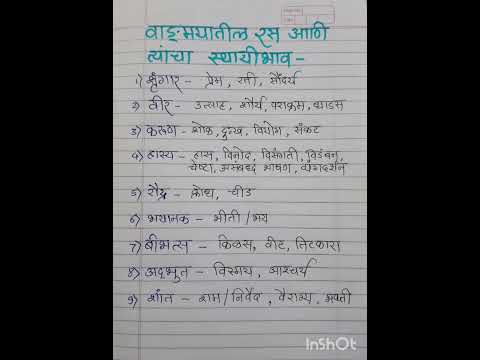 वाङ्मयातील रस आणि
त्यांचा स्थायीभाव -
1) शृंगार - प्रेम, रती, सौंदर्य
2) वीर - उत्साह, शौर्य, पराक्रम, धाडस
3) करुण - शोक, दुःख, वियोग, संकट
4) हास्य - हास, विनोद, विसंगती, विडंबन,
चेष्टा, असंबद्ध भाषण, व्यंगदर्शन
5) रौद्र - क्रोध, चीड
6) भयानक - भीती/भय
7) बीभत्स - किळस, वीट, तिटकारा
8) अद्भुत - विस्मय, आश्चर्य
9) शांत - शम/निर्वेद, वैराग्य, भक्ती
InShOt